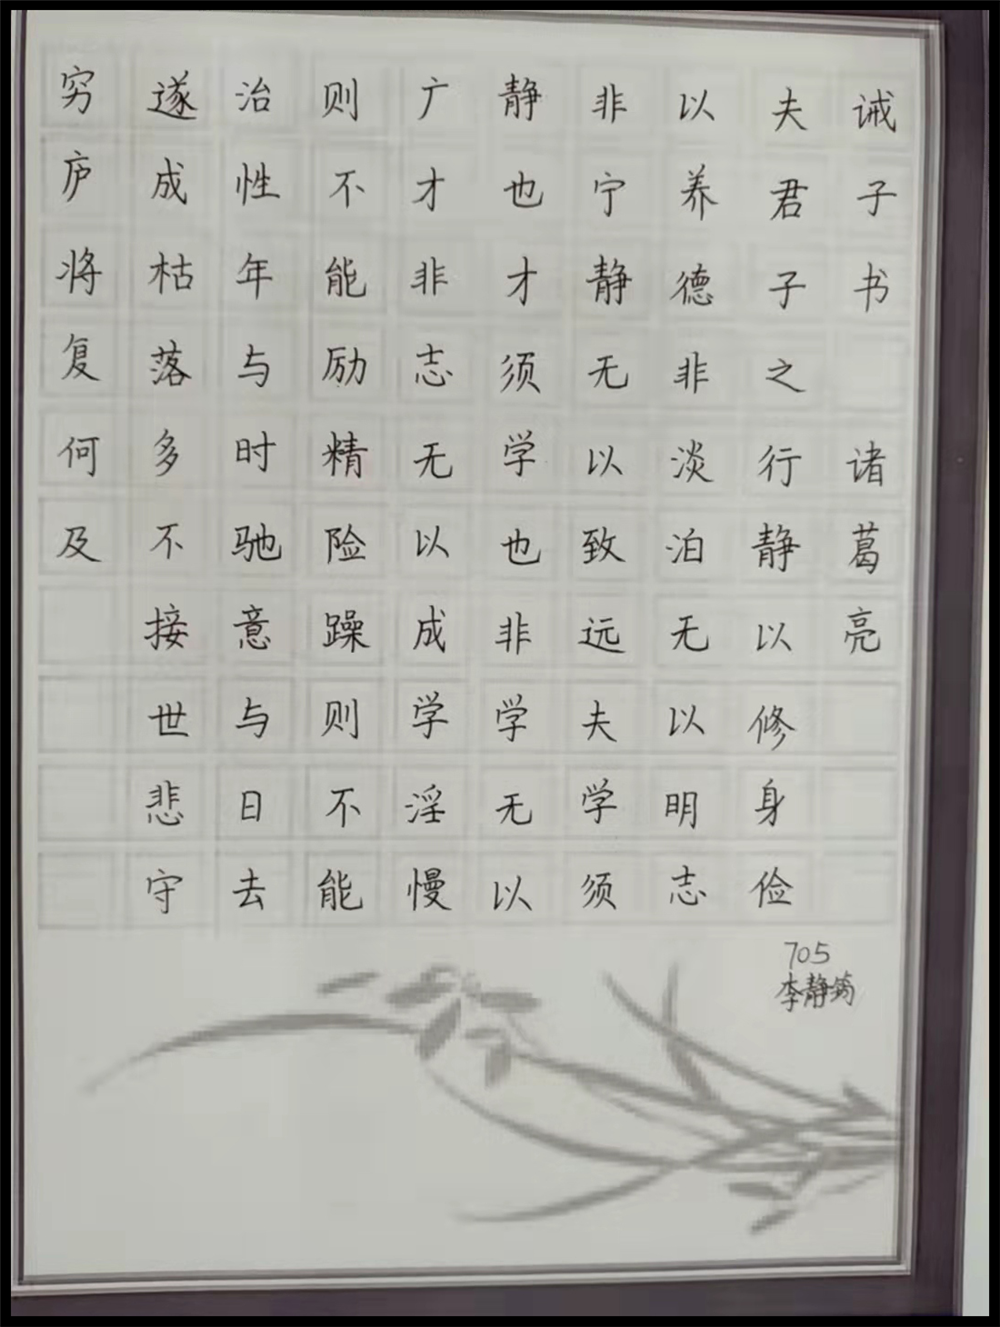 诫子书 诸葛亮
夫君子之行静以修身俭
以养德非淡泊无以明志
非宁静无以致远夫学须
静也才须学也非学无以
广才非志无以成学淫慢
则不能励精险躁则不能
治性年与时驰意与日去
遂成枯落多不接世悲守
穷庐将复何及
705
李静